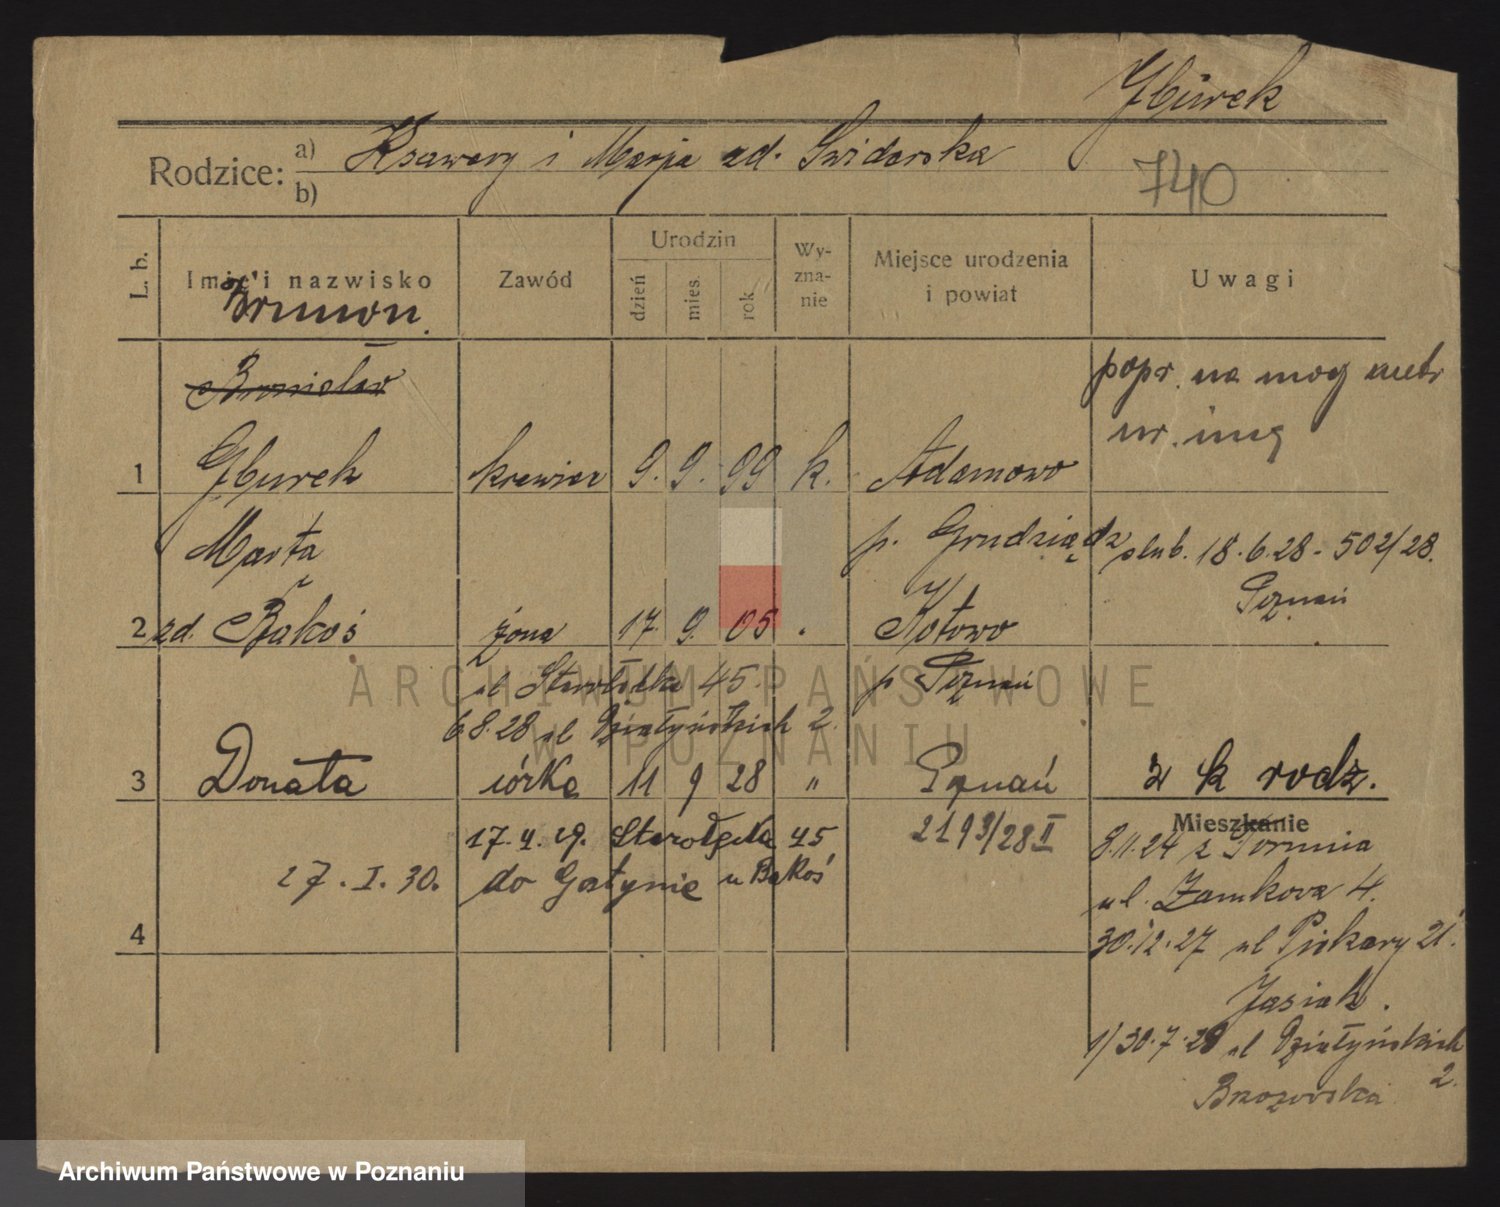 Gburek
Rodzice: a) Ksawery i Marja zd. Swiderska
b)
740
L. b.
Imię i nazwisko
Zawód
Urodzin
dzień
mies.
rok
Wy-
zna-
nie
Miejsce urodzenia
i powiat
Uwagi
Brunon.
Bronisław
popr. na mocy metr
ur.
1 Gburek krawiec 9. 9. 99 k. Adamowo
Marta p. Grudziądz ślub. 18.6.28 - 502/28.
Poznań
2 zd. Bąkoś żona 17. 9. 05 Kotowo
ul Starołęcka 45 p Poznań
6.8.28 ul Działyńskich 2.
3 Donata córka 11 9 28 " Poznań z k rodz.
17.4.29. Starołęcka 45 2193/28 II
27. I. 30. do Gostynia u Bąkoś
Mieszkanie
8.11.24 z Torunia
ul. Zamkowa 4.
4
30.12.27 ul Piekary 21.
Jasiak.
1/30.7.28 ul Działyńskich
2.
Brzozowska
ARCHIWUM PAŃSTWOWE
W POZNANIU
Archiwum Państwowe w Poznaniu